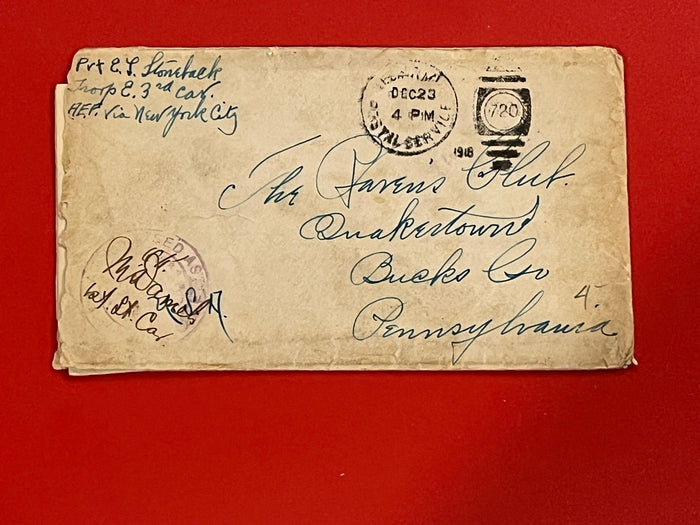 Pvt E. L. Stoneback
Troop E. 3rd Cav.
AEF. Via New York City
DEC 23
4 PM
POSTAL SERVICE
1918
720
The Raven's Club.
Quakertown
Bucks Co
Pennsylvania
4
1st. Lt. Cav.